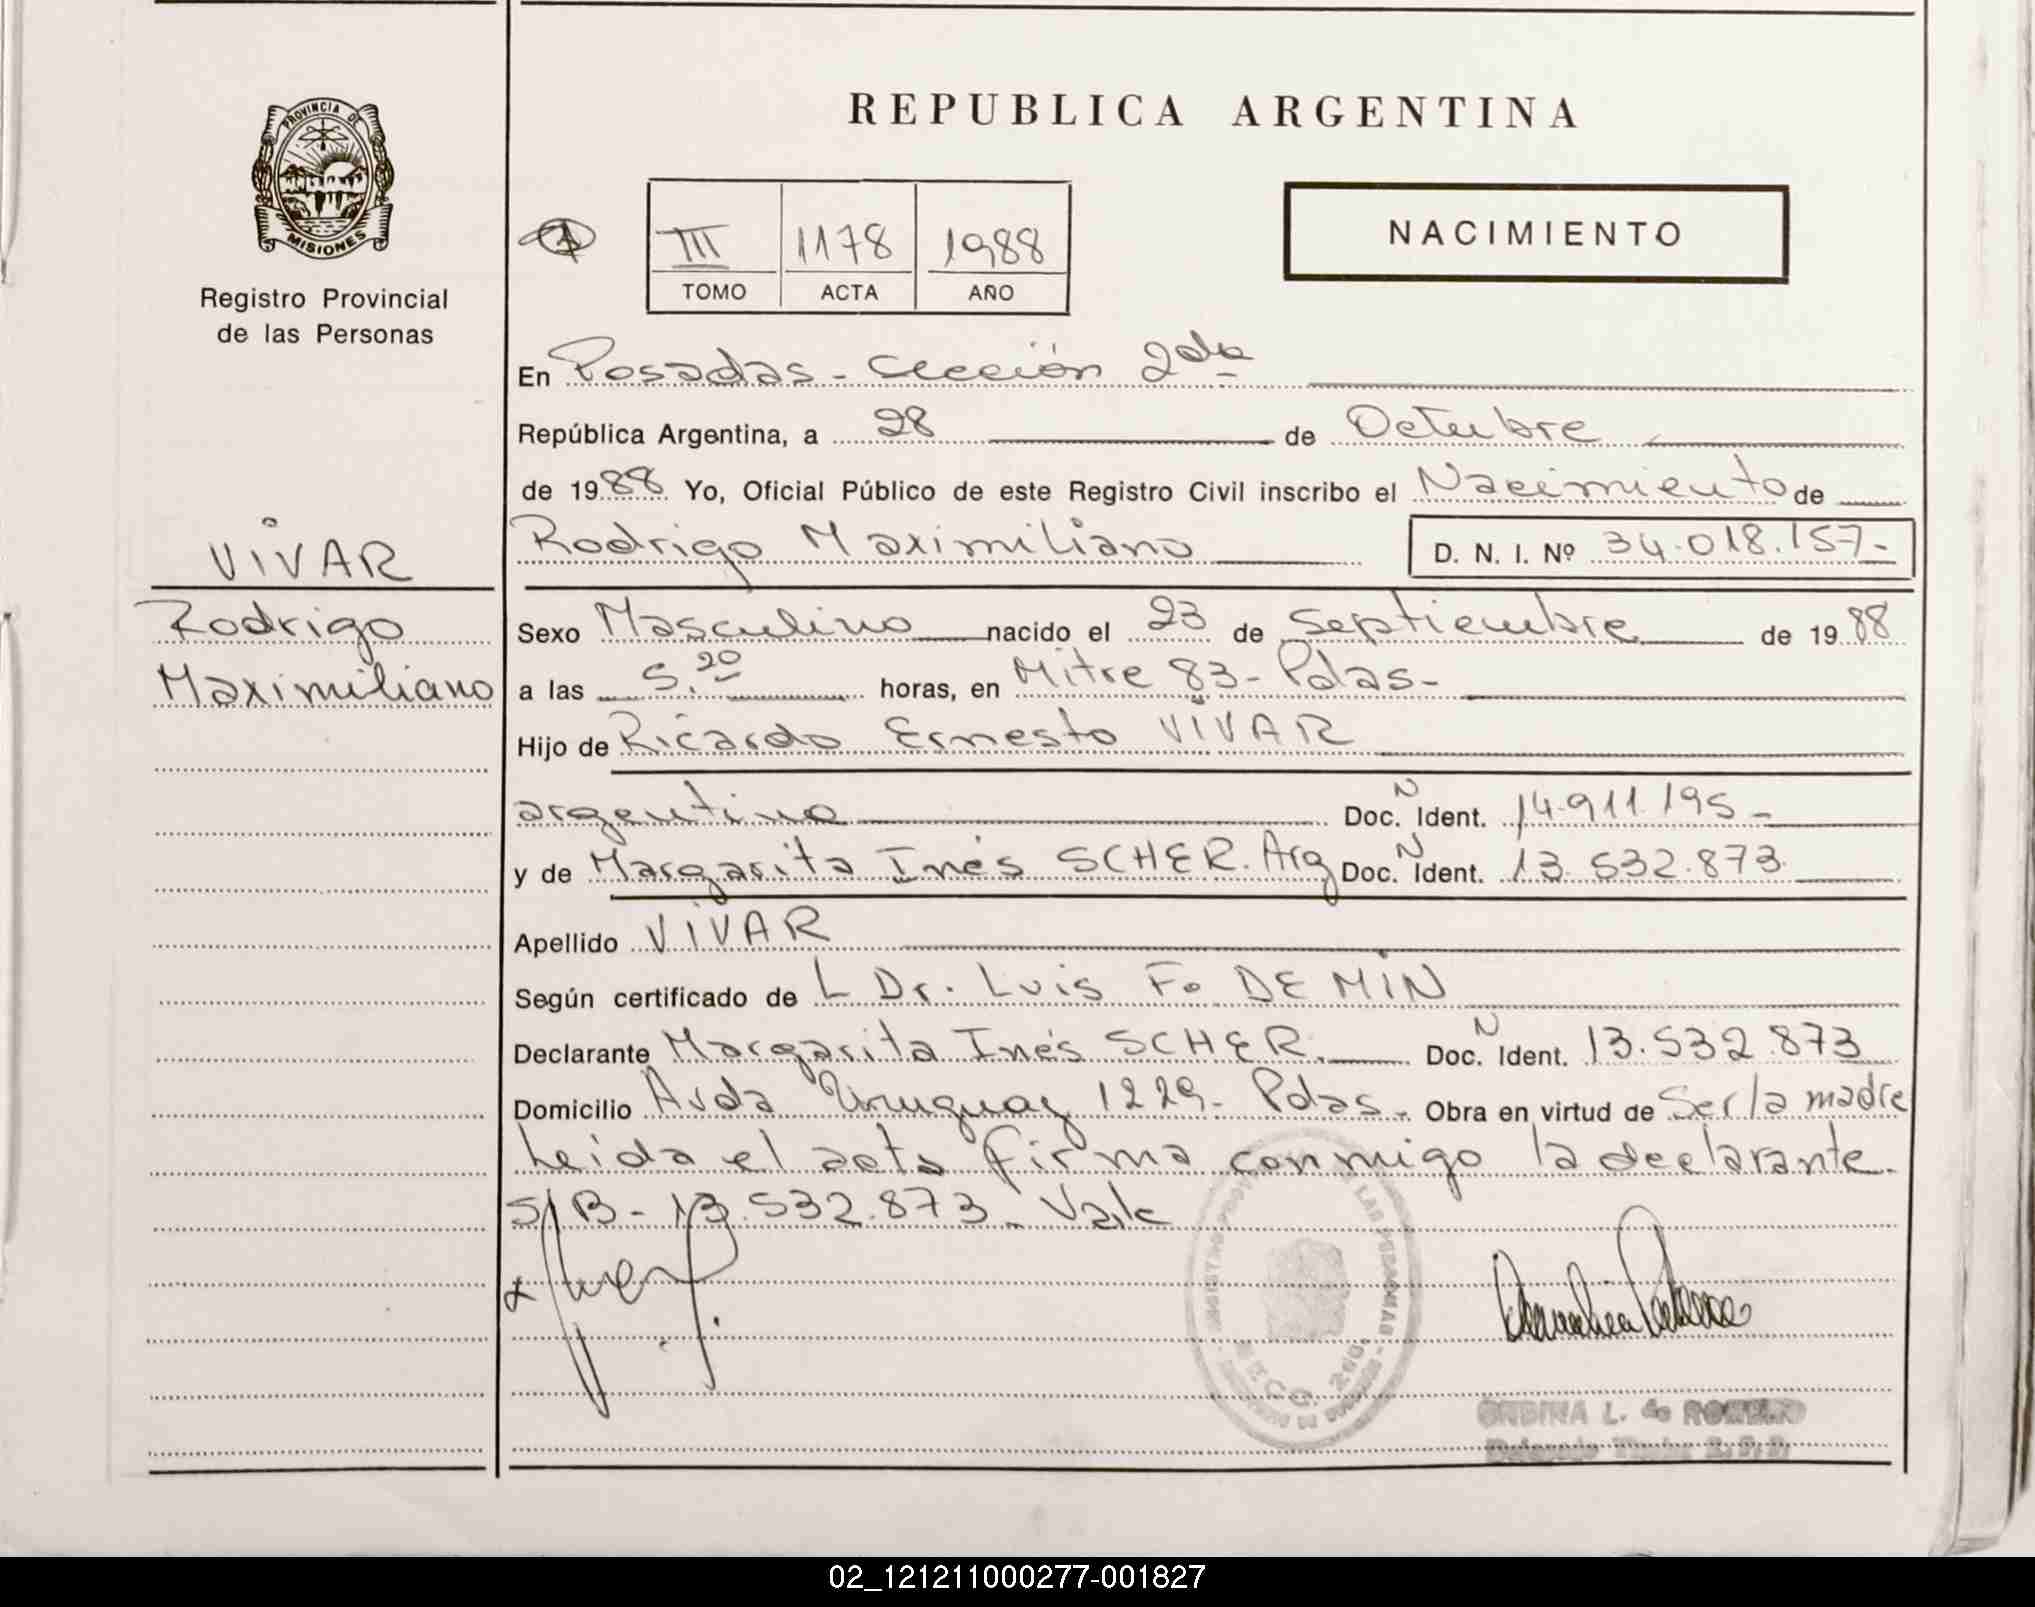 REPUBLICA ARGENTINA
PROVINCIA DE
MISIONES
Registro Provincial
de las Personas
III 1178 1988
TOMO ACTA AÑO
NACIMIENTO
En Posadas - Sección 2da
República Argentina, a 28 de Octubre
de 1988 Yo, Oficial Público de este Registro Civil inscribo el Nacimiento de
Rodrigo Maximiliano D. N. I. Nº 34.018.157-
VIVAR
Rodrigo
Maximiliano
Sexo Masculino nacido el 23 de Septiembre de 1988
a las 5.20 horas, en Mitre 83 - Pdas-
Hijo de Ricardo Ernesto VIVAR
argentino Doc. N Ident. 14.911.195-
y de Margarita Inés SCHER. Arg Doc. N Ident. 13.532.873
Apellido VIVAR
Según certificado de L Dr. Luis Fo DEMIN
Declarante Margarita Inés SCHER. Doc. N Ident. 13.532.873
Domicilio Avda Uruguay 1229- Pdas. Obra en virtud de Ser la madre
Leida el acta firma conmigo la declarante.
S/B - 13.532.873. Vale
REGISTRO LAS PERSONAS
SECC. 2da.
ONDINA L. de ROMERO
Delegado Titular R. P. P.
02_121211000277-001827